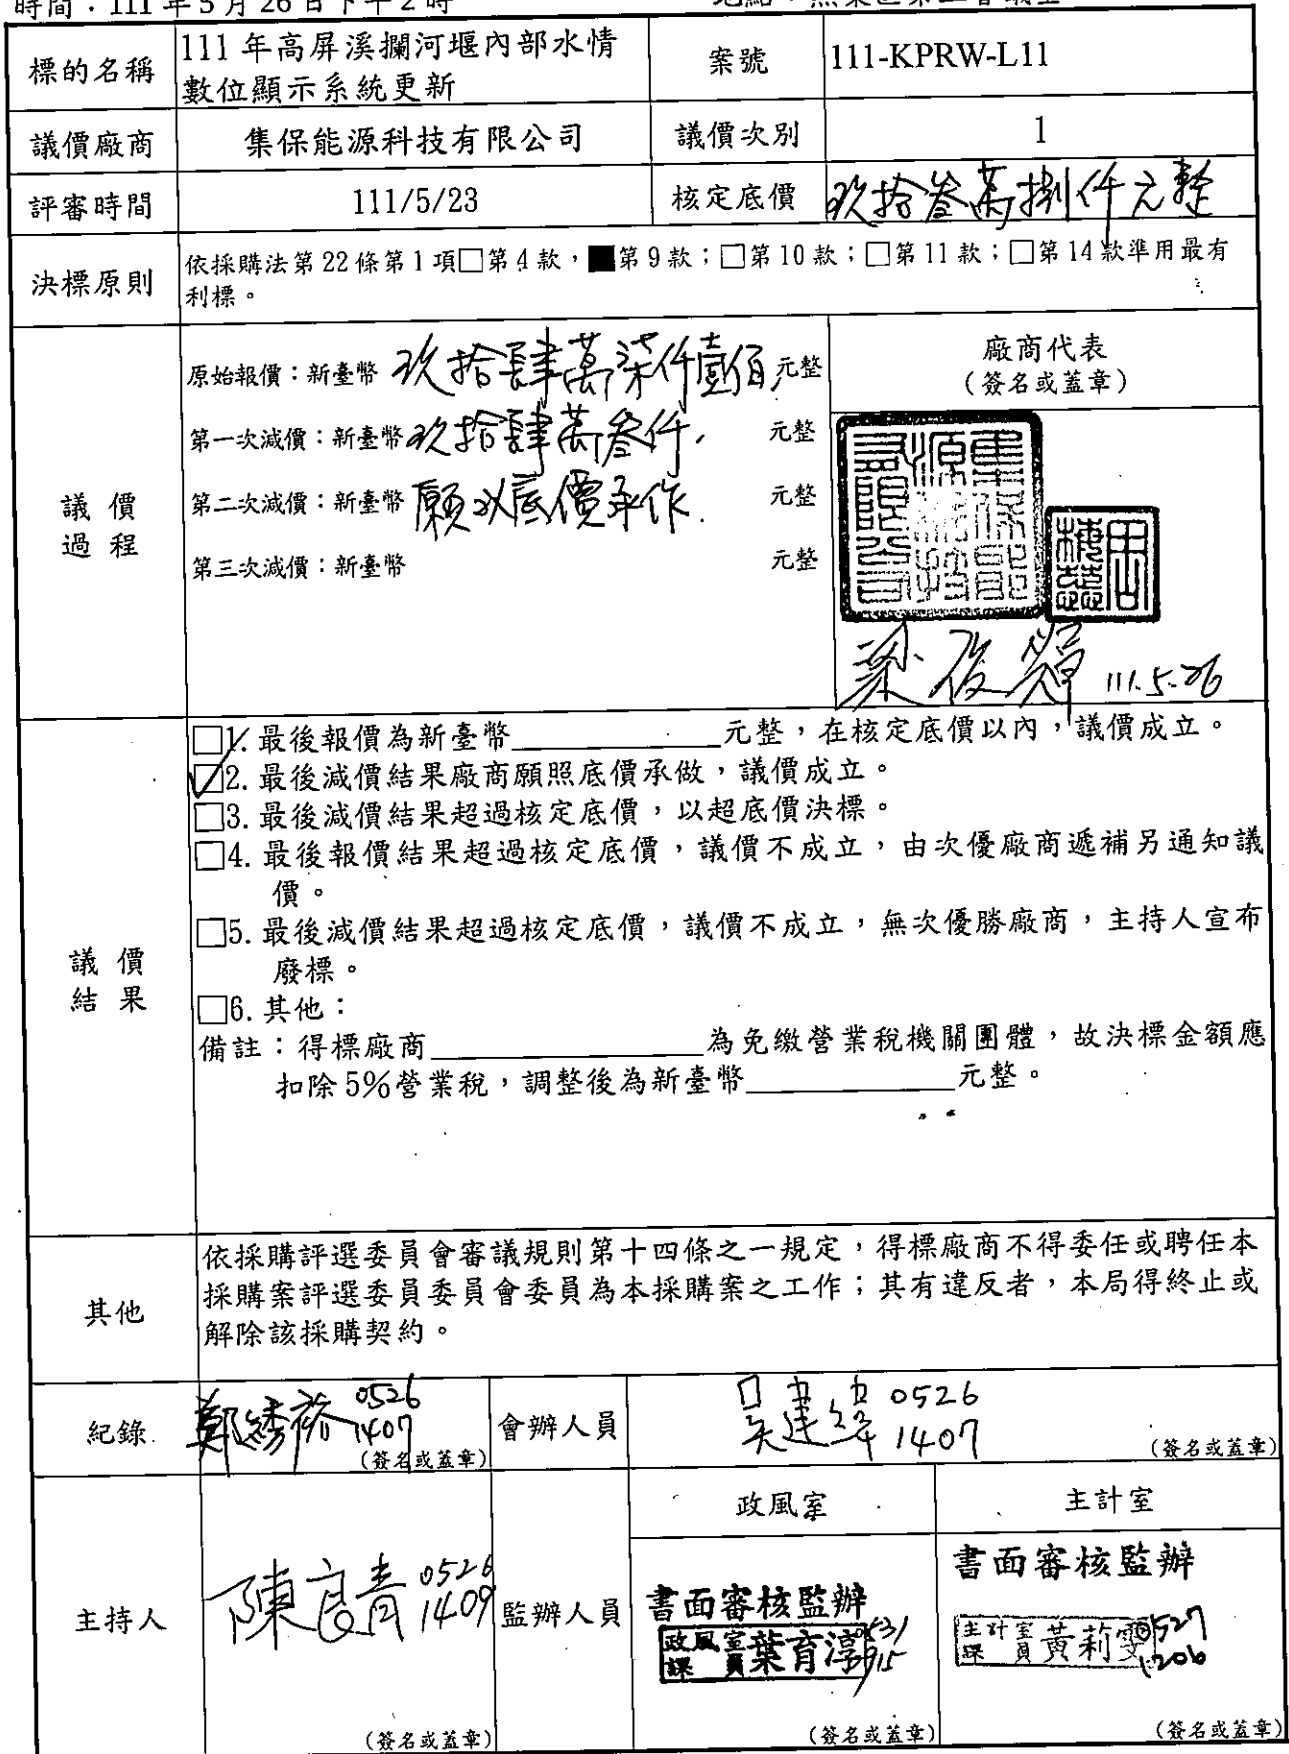 時間：111 年 5 月 26 日下午 2 時
標的名稱
111 年高屏溪攔河堰內部水情
數位顯示系統更新
案號
111-KPRW-L11
議價廠商
集保能源科技有限公司
議價次別
1
評審時間
111/5/23
核定底價
玖拾叁萬捌仟元整
決標原則
依採購法第 22 條第 1 項□第 4 款，■第 9 款；□第 10 款；□第 11 款；□第 14 款準用最有
利標。
議 價
過 程
原始報價：新臺幣 玖拾肆萬柒仟壹佰 元整
第一次減價：新臺幣 玖拾肆萬叁仟. 元整
第二次減價：新臺幣 願以底價承作. 元整
第三次減價：新臺幣 元整
廠商代表
（簽名或蓋章）
111.5.26
議 價
結 果
□1. 最後報價為新臺幣____________元整，在核定底價以內，議價成立。
☑2. 最後減價結果廠商願照底價承做，議價成立。
□3. 最後減價結果超過核定底價，以超底價決標。
□4. 最後報價結果超過核定底價，議價不成立，由次優廠商遞補另通知議
價。
□5. 最後減價結果超過核定底價，議價不成立，無次優勝廠商，主持人宣布
廢標。
□6. 其他：
備註：得標廠商________________為免繳營業稅機關團體，故決標金額應
扣除 5%營業稅，調整後為新臺幣____________元整。
其他
依採購評選委員會審議規則第十四條之一規定，得標廠商不得委任或聘任本
採購案評選委員委員會委員為本採購案之工作；其有違反者，本局得終止或
解除該採購契約。
紀錄
0526
1407
(簽名或蓋章)
會辦人員
吳建緯 0526
1407
(簽名或蓋章)
主持人
陳良青 0526
1409
(簽名或蓋章)
監辦人員
政風室
書面審核監辦
政風室
課員 葉育淳
(簽名或蓋章)
主計室
書面審核監辦
主計室
課員 黃莉雯 0527
1206
(簽名或蓋章)